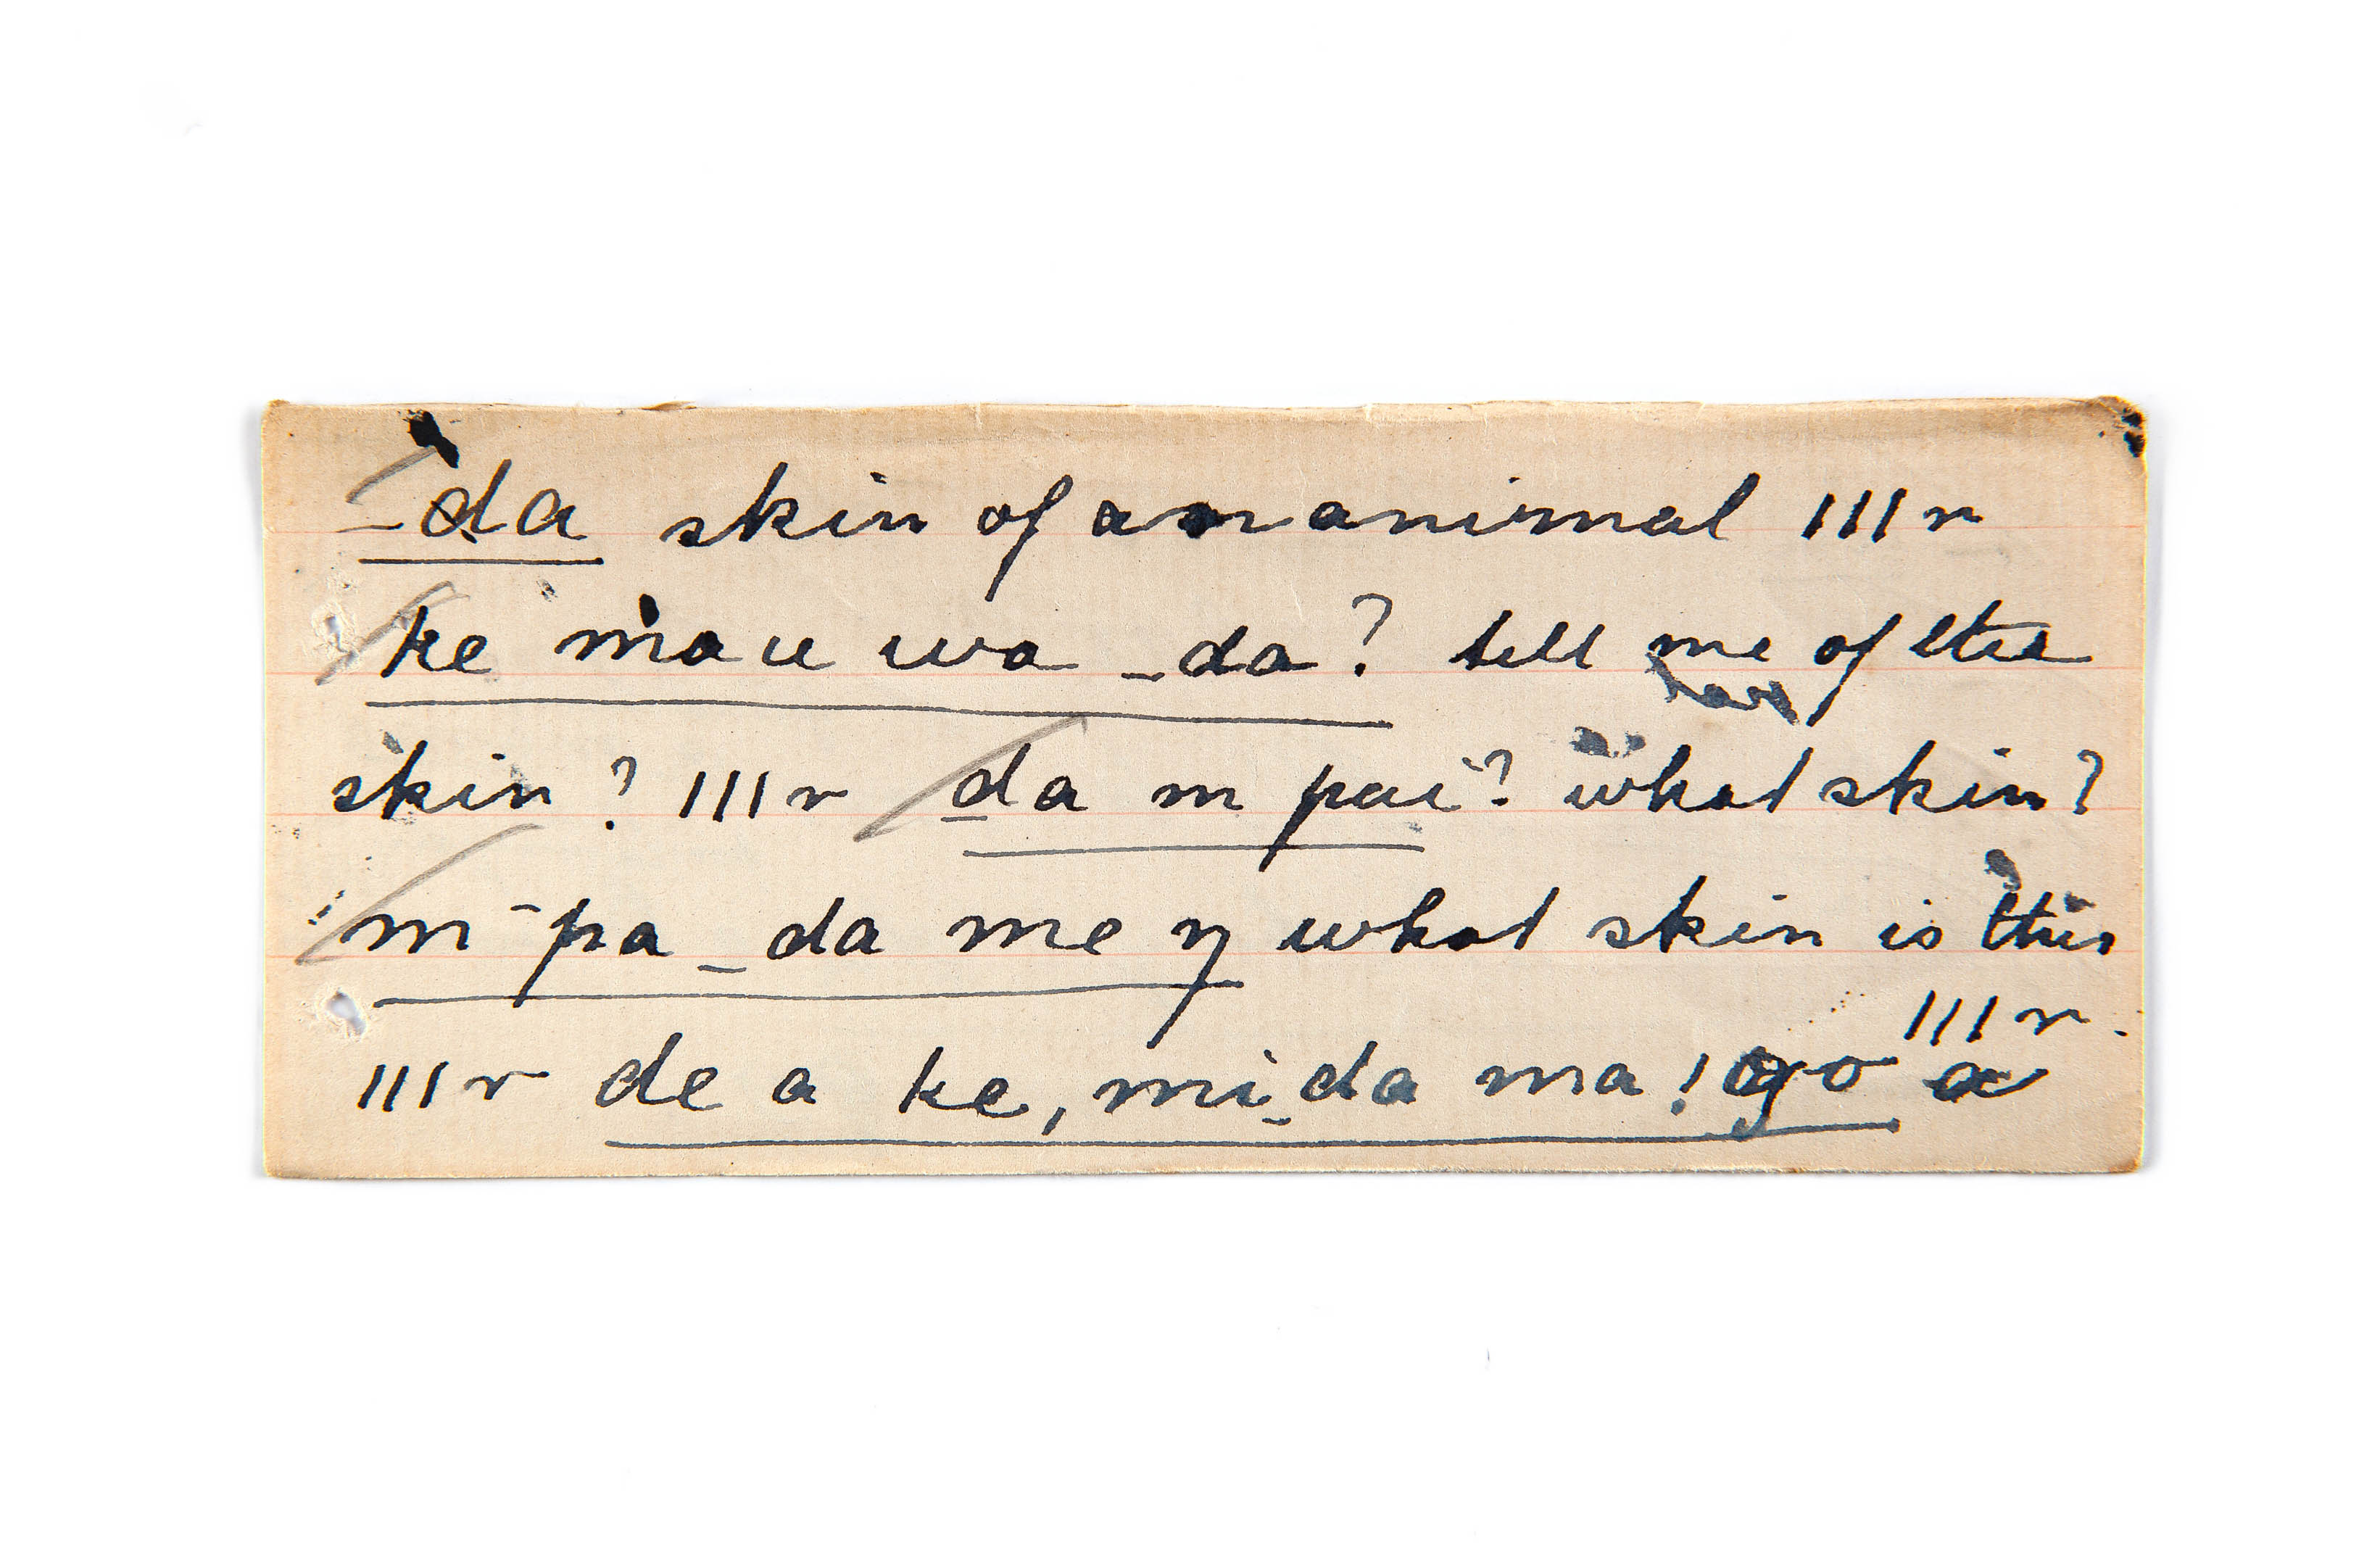 _da skin of an animal III r
ke mau wa _da? tell me of the
skin? III r _da m pai? what skin?
m ̄pa _da me ŋ what skin is this
III r.
III r de a ke, mi _da ma! go a